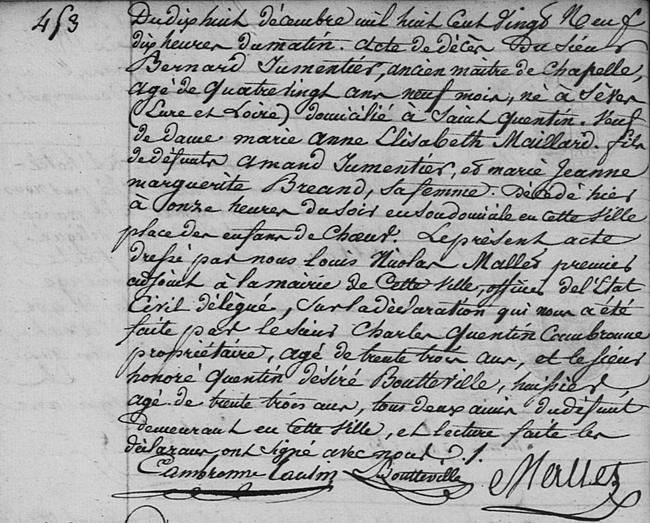 453
Du dix huit décembre mil huit Cent Vingt Neuf
dix heures du matin. acte de décès Du Sieur
Bernard Jumentier, ancien maitre de Chapelle,
agé de Quatrevingt ans neuf mois, né à Lèves
(Eure et Loire) domicilié à Saint Quentin. Veuf
de dame marie anne Elisabeth Maillard. fils
de défunts amand Jumentier, et marie Jeanne
marguerite Breand, Sa femme. Décédé hier
à onze heures du soir en son domicile en cette Ville
place des enfans de Chœur. Le présent acte
dressé par nous Louis Nicolas Mallet premier
adjoint à la mairie de cette Ville, officier de l'Etat
Civil délégué, Sur la déclaration qui nous a été
faite par le Sieur Charles Quentin Cambronne
propriétaire, agé de trente trois ans, et le Sieur
honoré Quentin désiré Boutteville, huissier,
agé de trente trois ans, tous deux amis du défunt
demeurant en cette Ville, et lecture faite les
déclarans ont signé avec nous.
Cambronne Boutteville Mallet